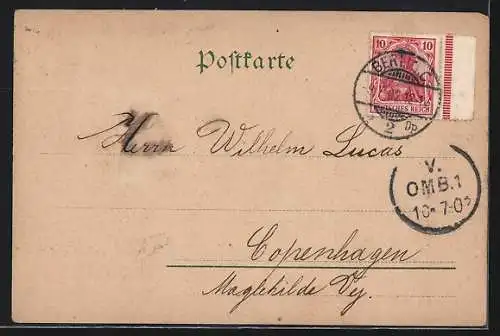 Postkarte
10 10
BERLIN C
DEUTSCHES REICH
2 Op
Herrn Wilhelm Lucas
V.
OMB.1
16.7.03
Copenhagen
Maglekilde Vej.